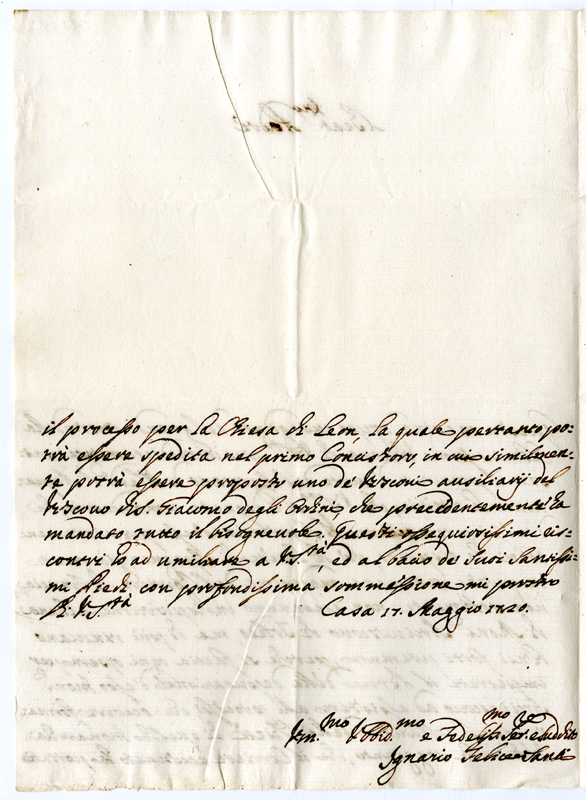 il processo per la Chiesa di Leon, la quale pertanto po-
trà essere spedita nel primo Concistoro, in cui similmen-
te potrà essere proposto uno de Vescovi ausiliarij del
Vescovo di S. Giacomo degli che precedentemente hà
mandato tutto il bisognevole. Questi ossequiosissimi ris-
contri hò ad umiliare a V. S.tà, ed al bacio de Suoi Santissi-
mi Piedi con profondissima sommessione mi prostro
Di V. S.tà Casa 17. Maggio 1720.
Um.mo Obbid.mo e Fedeliss.mo Ser.e e suddito
Ignazio Felice Santi